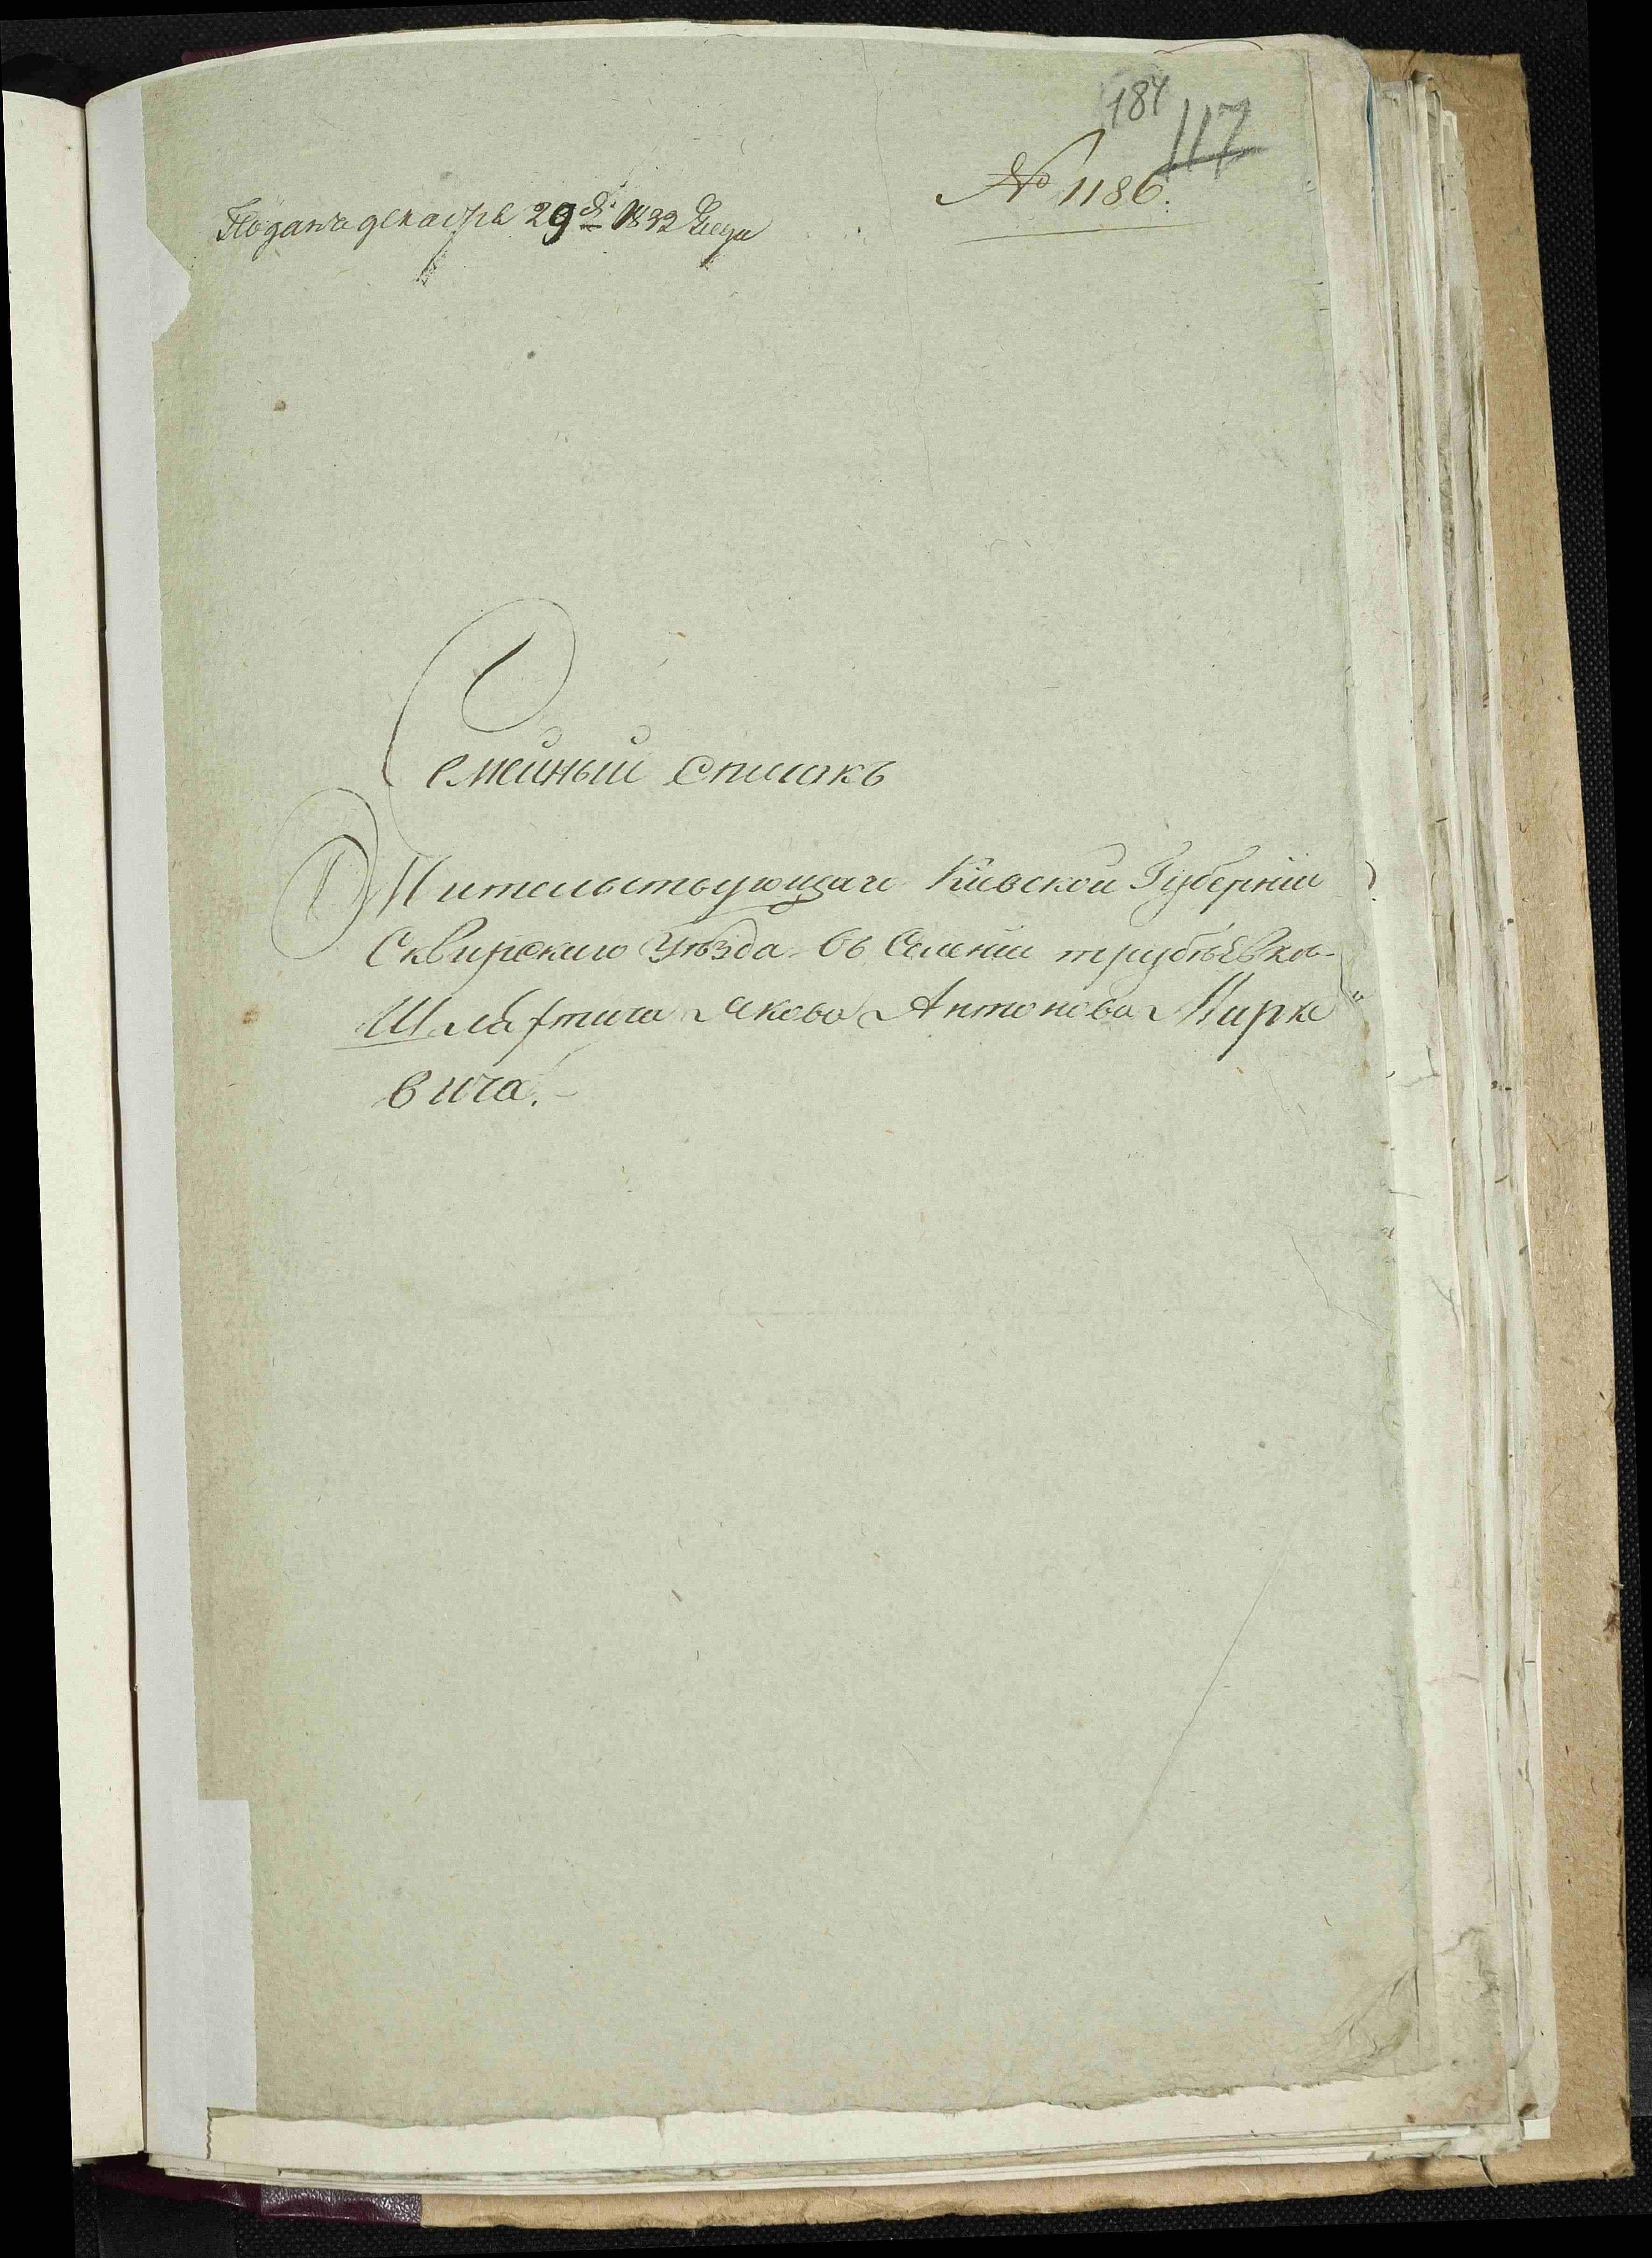 184
117
№ 1186.
Подана декабря 29 дня 1832 года
Семейный списокъ
Жительствующаго Кіевской Губерніи
Сквирскаго Уѣзда въ Селеніи трубѣевки
Шляхтича Якова Антонова Марке
вича.